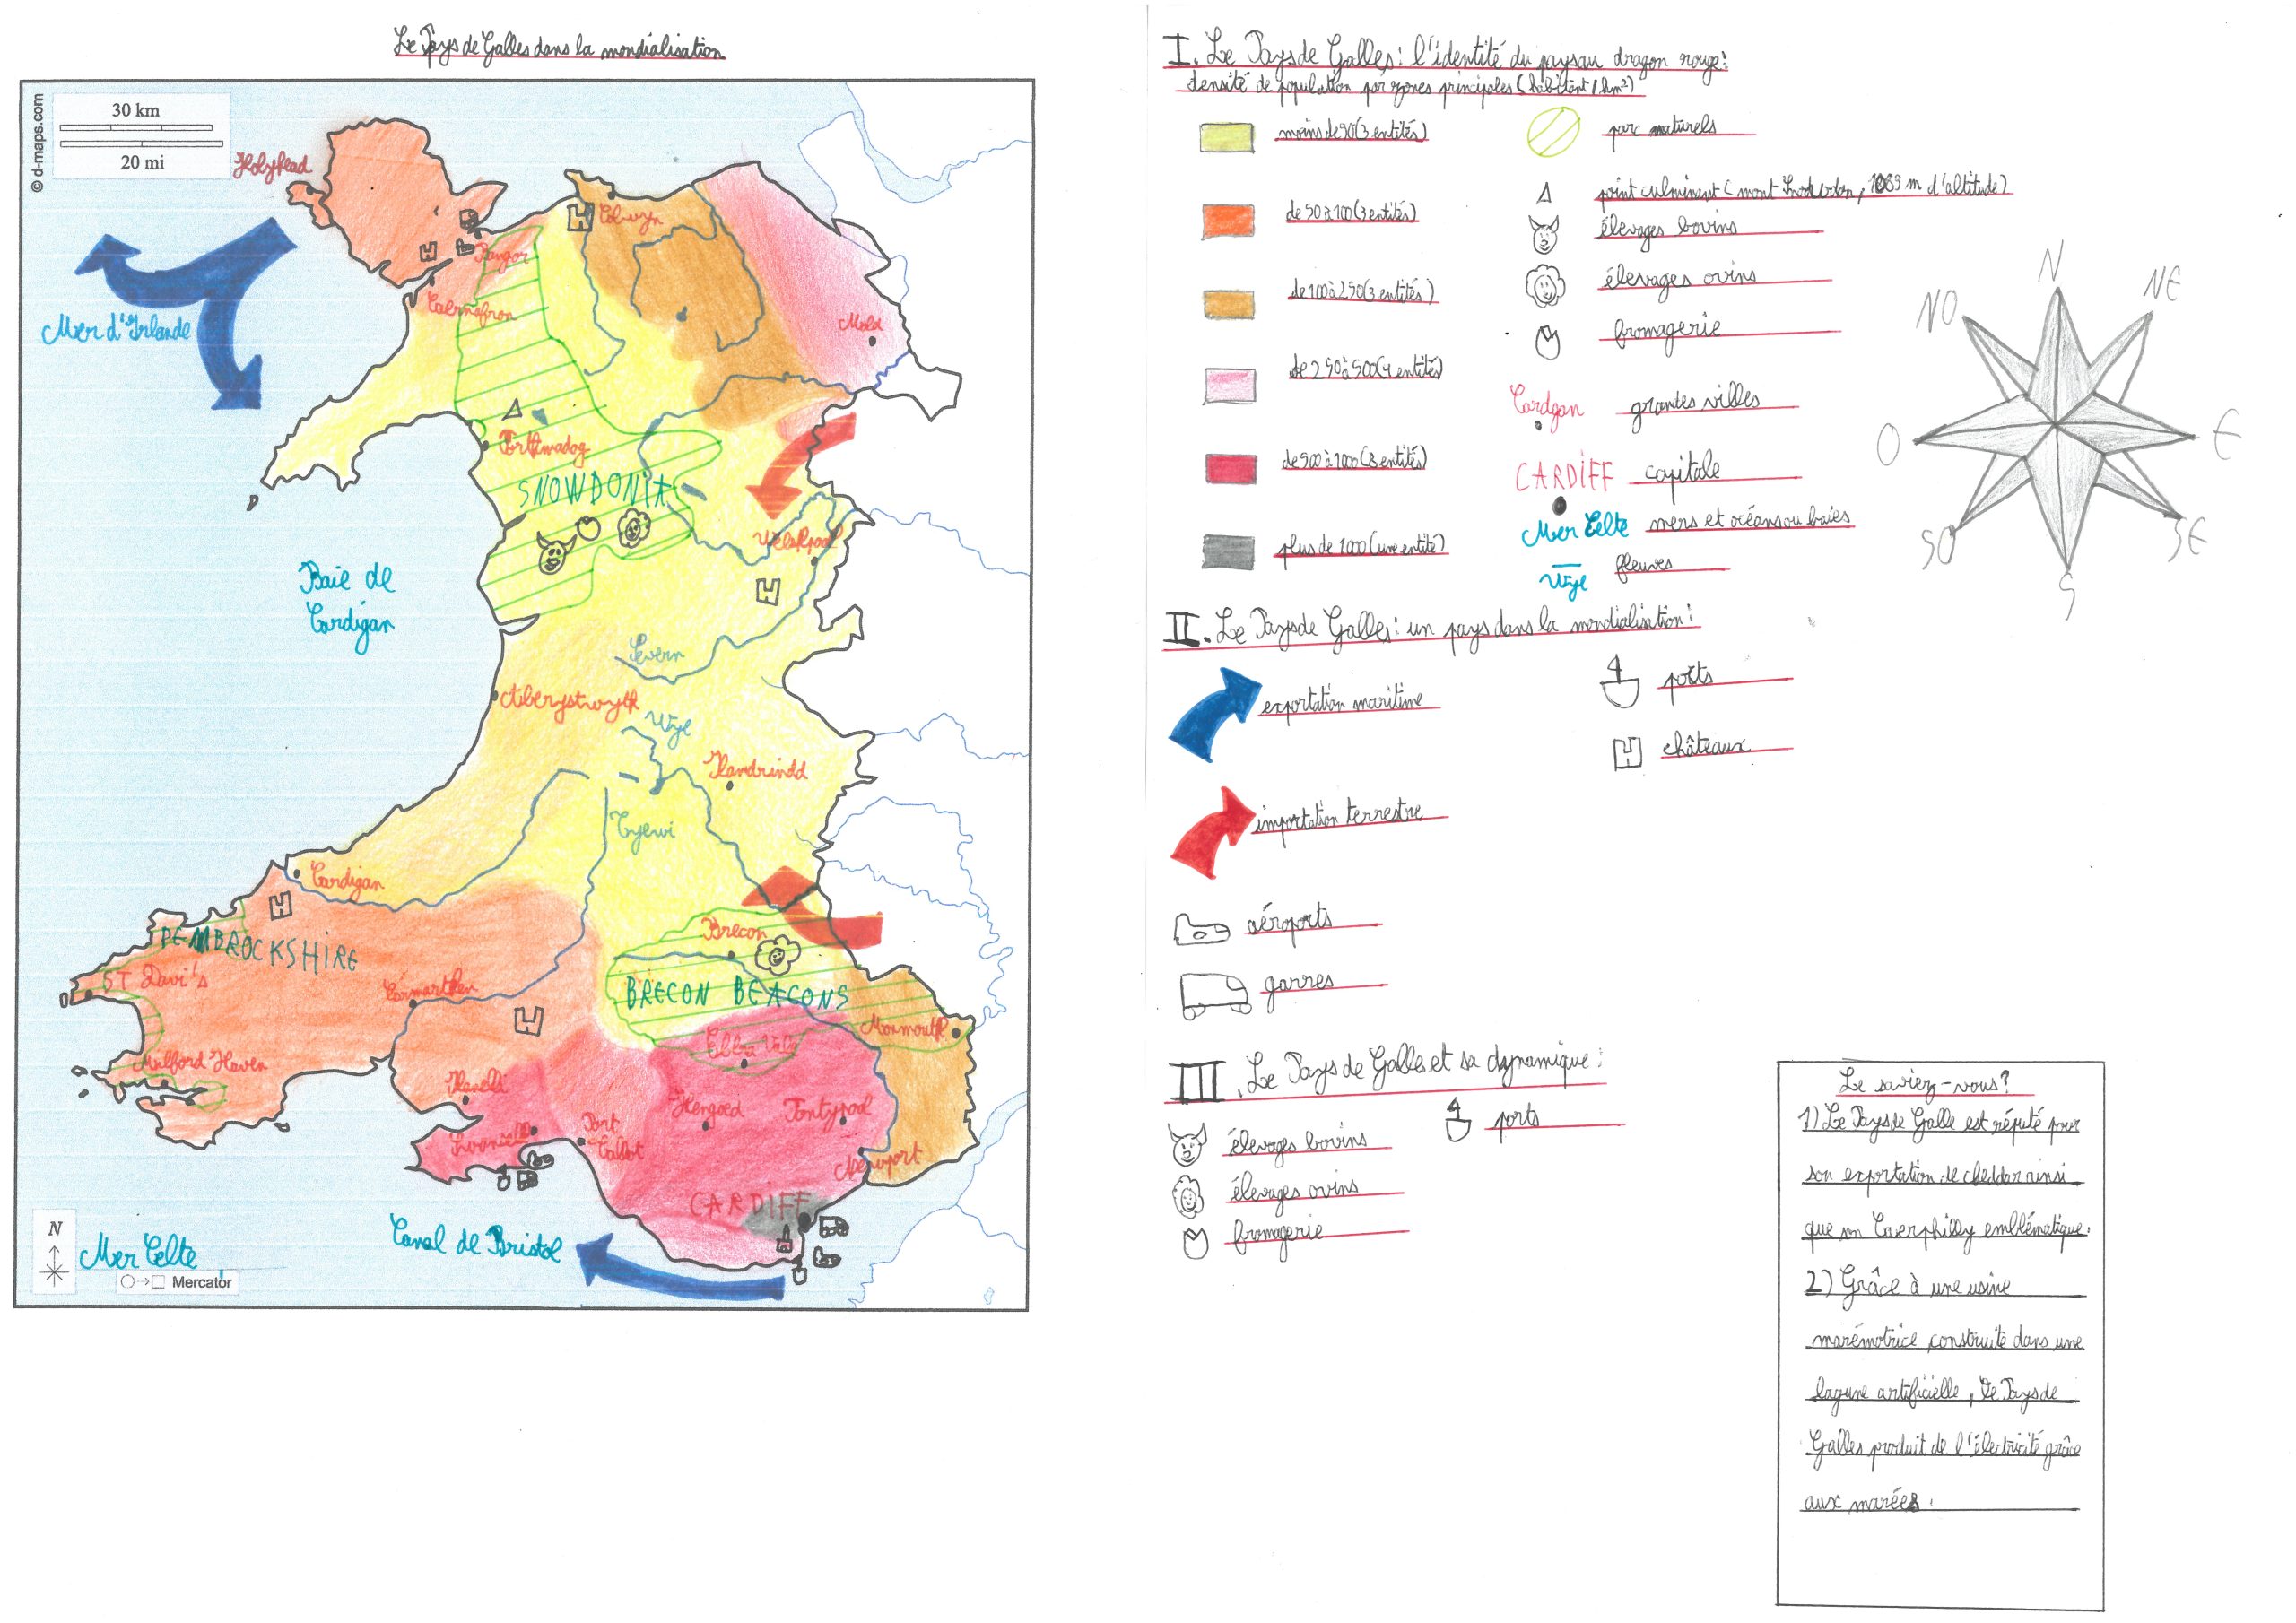 Le Pays de Galles dans la mondialisation
© d-maps.com
30 km
20 mi
Holyhead
Colwyn
Bangor
Caernafron
Mold
Mer d'Irlande
Porthmadog
SNOWDONIA
Welshpool
Baie de
Cardigan
Severn
Aberystwyth
Wye
Llandrindd
Tyewi
Cardigan
Brecon
PEMBROCKSHIRE
ST Davi's
Carmarthen
BRECON BEACONS
Monmouth
Ebbw Vale
Milford Haven
Llanelli
Hengoed
Pontypool
Port
Talbot
Newport
CARDIFF
Canal de Bristol
N
Mer Celte
Mercator
I. Le Pays de Galles: l'identité du pays au dragon rouge:
densité de population par zones principales (habitant/km²)
moins de 50 (3 entités)
parc naturels
point culminent (mont Snowdon, 1085 m d'altitude)
de 50 à 100 (3 entités)
élevages bovins
élevages ovins
de 100 à 250 (3 entités)
fromagerie
de 250 à 500 (4 entités)
Cardgan
grandes villes
de 500 à 1000 (3 entités)
CARDIFF
capitale
Mer Celte
mers et océans ou baies
plus de 1000 (une entité)
Wye
fleuves
N
NE
E
SE
S
SO
O
NO
II. Le Pays de Galles: un pays dans la mondialisation:
exportation maritime
ports
châteaux
importation terrestre
aéroports
garres
III. Le Pays de Galle et sa dynamique:
élevages bovins
ports
élevages ovins
fromagerie
Le saviez-vous?
1) Le Pays de Galle est réputé pour
son exportation de cheddar ainsi
que son Caerphilly emblématique.
2) Grâce à une usine
marémotrice construite dans une
lagune artificielle, Le Pays de
Galles produit de l'électricité grâce
aux marées.